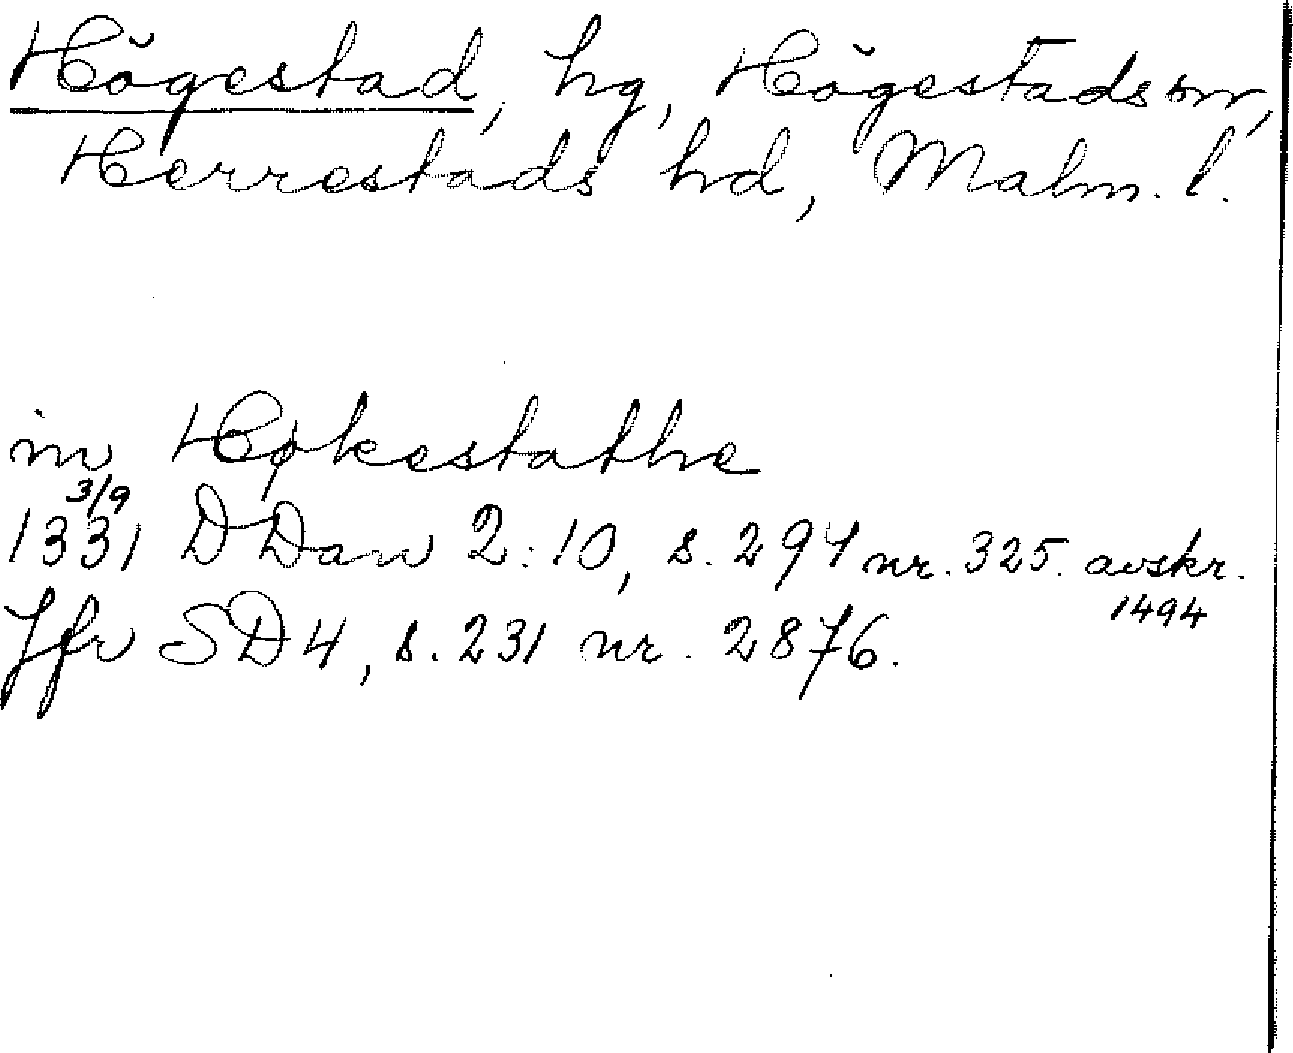 Högestad, hg, Högestads sn,
Herrestads hd, Malm. l.
in Høkestathe
3/9
1331 DDan 2:10, s. 294 nr. 325. avskr.
1494
Jfr SD4, s. 231 nr. 2876.